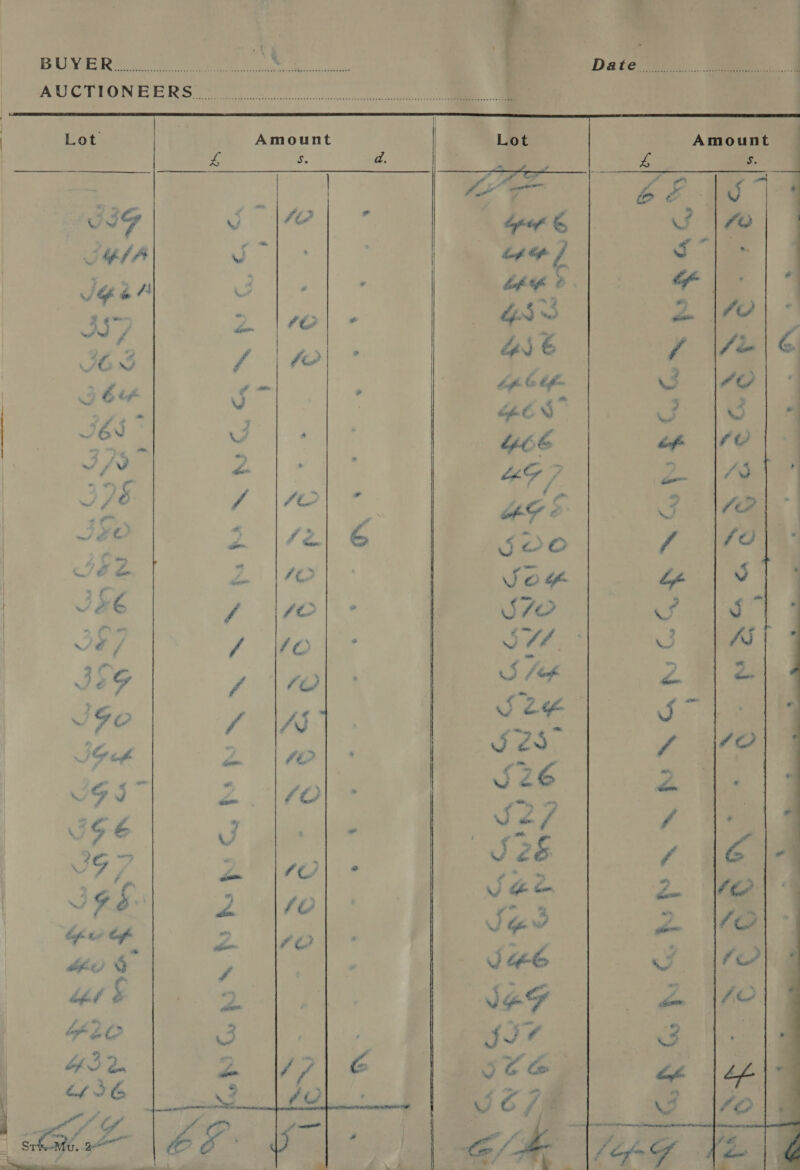 BUYER Date
AUCTIONEERS
Lot Amount Lot Amount
£ s. d. £ s.
68 5 -
339 5 10 - 446 3 10
341A 5 - - 447 5 - -
342A 3 - - 448 4 - -
357 2 10 - 453 2 10 -
363 1 10 - 456 1 12 6
364 5 - - 464 3 10 -
365 3 - - 465 3 3 -
375 2 - - 466 4 10
378 1 10 - 497 2 15 -
380 2 12 6 498 3 10
382 2 10 - 500 1 10 -
386 1 10 - 504 4 5
387 1 10 - 510 3 5 -
389 1 10 511 3 15 -
390 1 15 - 514 2 2 -
394 2 10 - 524 5 - -
395 2 10 - 525 1 10 -
396 3 - - 526 2 - -
397 2 10 - 527 1 - -
398 2 10 - 528 1 6 -
404 2 10 - 542 2 10 -
405 1 - 543 2 10 -
418 2 546 3 10 -
420 3 - 549 2 10 -
432 2 17 6 557 3 - -
436 3 10 - 566 4 4 -
68 5 - 567 3 10 -
Mu. 2 149 12 6